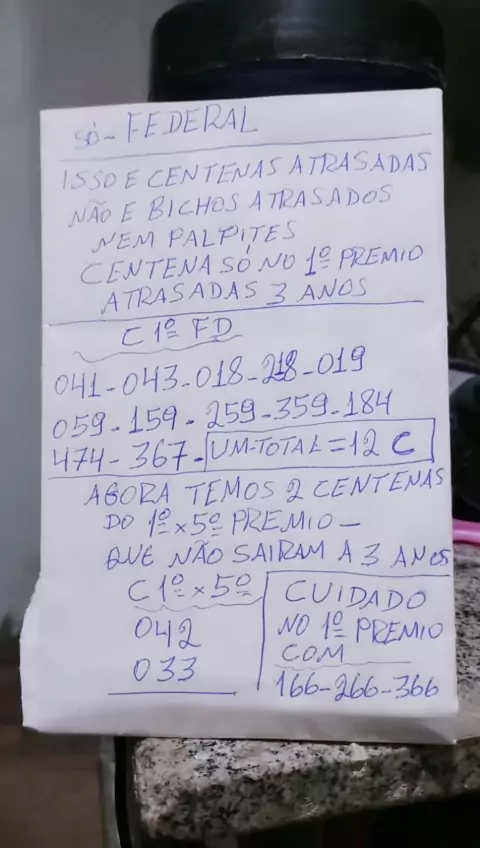 SÓ - FEDERAL
ISSO E CENTENAS ATRASADAS
NÃO E BICHOS ATRASADOS
NEM PALPITES
CENTENA SÓ NO 1º PREMIO
ATRASADAS 3 ANOS
C 1º FD
041-043-018-218-019
059-159-259-359-184
474-367-UM-TOTAL=12 C
AGORA TEMOS 2 CENTENAS
DO 1º x 5º PREMIO -
QUE NÃO SAIRAM A 3 ANOS
C 1º x 5º
042
033
CUIDADO
NO 1º PREMIO
COM
166-266-366